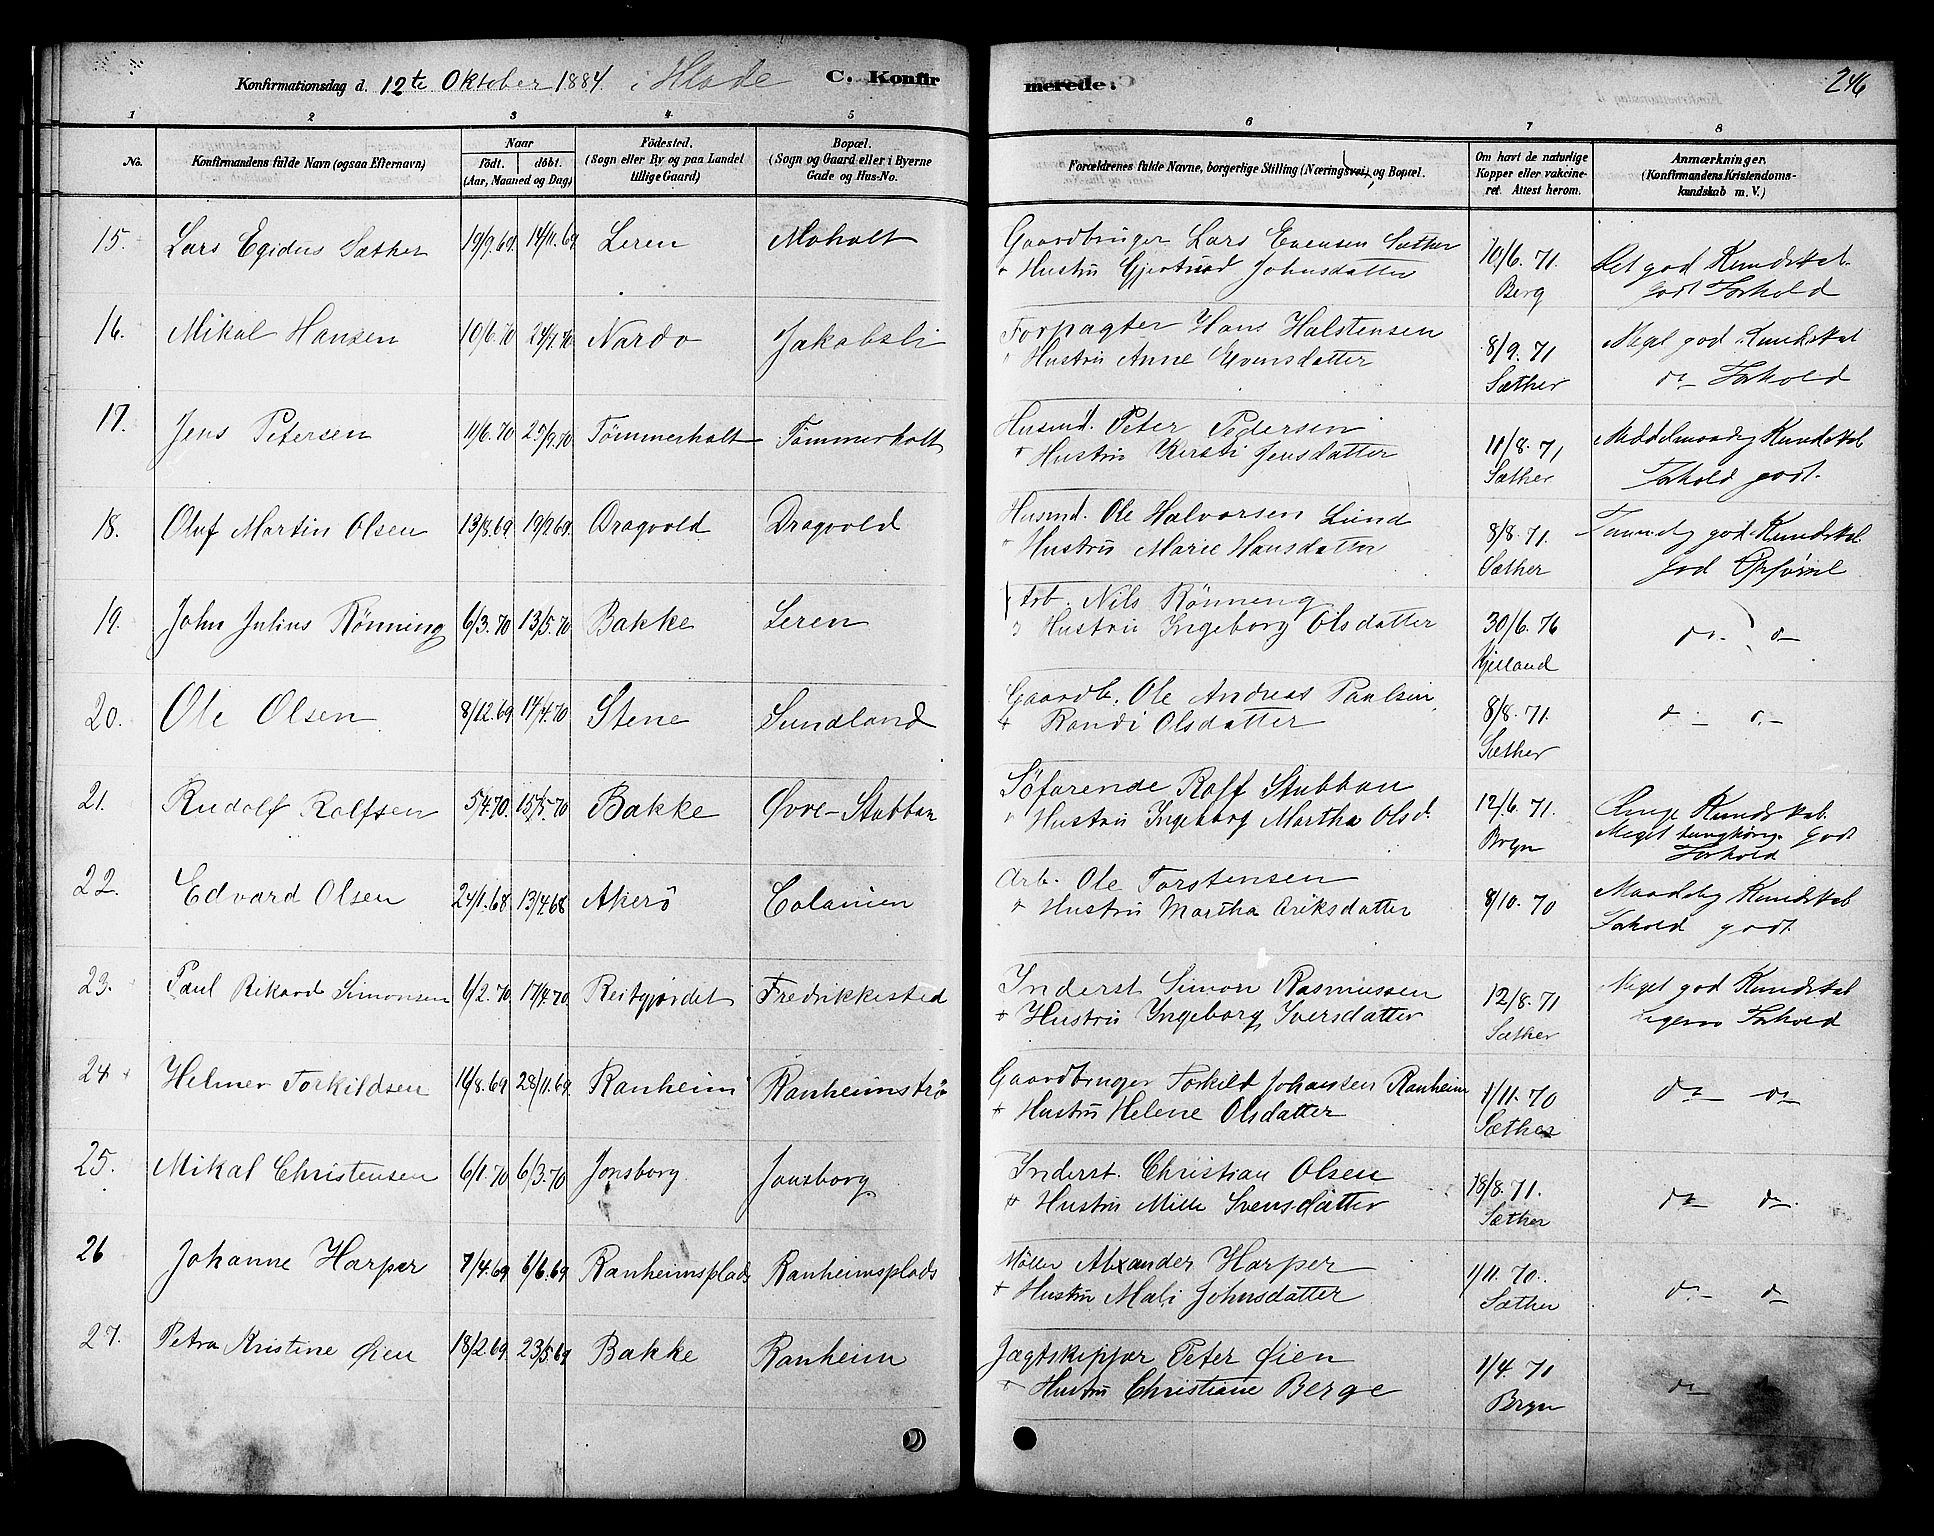 Konfirmationsdag d. 12te Oktober 1884 i Hlade C. Konfirmerede. 246
1 2 3 4 5 6 7 8
No. Konfirmandens fulde Navn (ogsaa Efternavn) Naar født. døbt. (Aar, Maaned og Dag) Fødested. (Sogn eller By og paa Landet tillige Gaard) Bopæl. (Sogn og Gaard eller i Byerne Gade og Hus-No. Forældrenes fulde Navne, borgerlige Stilling (Næringsvei) og Bopæl. Om havt de naturlige Kopper eller vakcineret. Attest herom. Anmærkninger. (Konfirmandens Kristendomskundskab m. V.)
15. Lars Egidius Sæther 19/9.69. 14/11.69. Leren Moholt Gaardbruger Lars Evensen Sæther 10/6.71. Ret god Kundskab
+ Hustru Gjertrud Johnsdatter Berg godt Forhold
16. Mikal Hansen 10/6.70 24/7.70 Nardo Jakobsli Forpagter Hans Halstensen 8/9.71 Meget god Kundskab
Hustru Anne Evensdatter Sæther do Forhold
17. Jens Petersen 11/6.70 25/9.70 Tømmerholt Tømmerholt Husmd. Peter Pedersen 11/8.71 Middelmaadig Kundskab
+ Hustru Kirsti Jensdatter Sæther Forhold godt.
18. Oluf Martin Olsen 13/8.69 19/9.69. Dragvold Dragvold Husmd. Ole Halvorsen Lund 8/8.71. god Kundskab
Hustru Marie Hansdatter Sæther god Opførsel
19. John Julius Rönning 6/3.70 13/5.70 Bakke Leren Arb. Nils Rönning 30/6.76 do do
Hustru Ingeborg Olsdatter
20. Ole Olsen 8/12.69 17/4.70 Stene Sundland Gaardb. Ole Andreas Paulsen, 8/8.71. do do
+ Randi Olsdatter Sæther
21. Rudolf Rolfsen 5/4.70. 15/5.70 Bakke Øvre-Stubban Söfarende Rolf Stubban 12/6.71. Ringe Kundskab.
Hustru Ingeborg Martha Olsd. Bryn Meget tunghörig. Godt
Forhold
22. Edvard Olsen 24/1.68. 13/4.68 Akerö Colonien Arb. Ole Torstensen 8/10.70 Maadelig Kundskab
+ Hustru Martha Eriksdatter Forhold godt.
23. Paul Rikard Simonsen 1/2.70 17/4.70 Reitgjerdet Fredrikkested Inderst Simon Rasmussen 12/8.71 Meget god Kundskab
+ Hustru Ingeborg Iversdatter Sæther ligesaa Forhold
24 Helmer Torkildsen 16/8.69 28/11.69. Ranheim Ranheimströ Gaardbruger Torkild Johansen Ranheim 1/11.70 do do
+ Hustru Helene Olsdatter Sæther
25. Mikal Christensen 6/1.70 6/3.70 Jonsborg Jonsborg Inderst. Christian Olsen 18/8.71. do do.
+ Hustru Mille Svensdatter Sæther
26 Johanne Harper 7/4.69 6/6.69 Ranheimsplads Ranheimsplads Möller Alxander Harper 1/11.70. do do
+ Hustru Mali Johnsdatter Sæther
27. Petra Kristine Øien 18/2.69. 23/5.69 Bakke Ranheim Jægtskipper Peter Øien 1/4.71 do
+ Hustru Christiane Berge Bryn